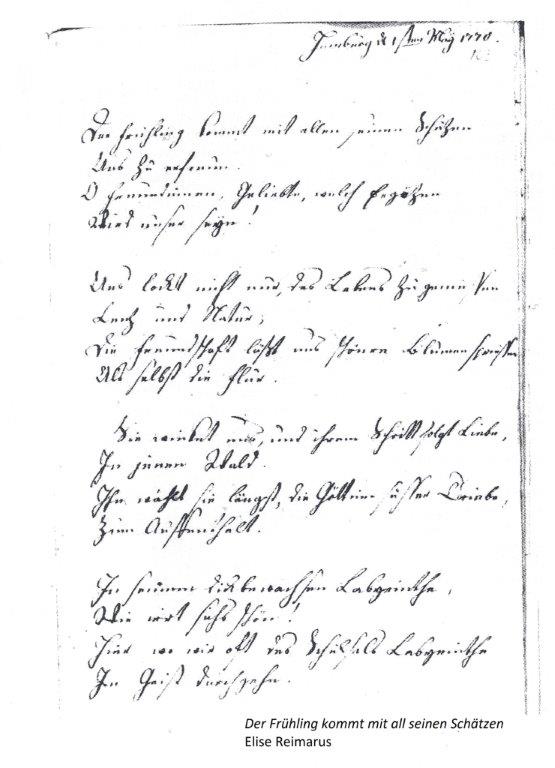 Hamburg d 1sten May 1778.
Der Frühling kommt mit allen seinen Schätzen
Uns zu erfreun.
O Freundinnen, Geliebte, welch Ergötzen
Wird unser seyn!
Uns lockt nicht nur, des Lebens zu geniessen
Lenz und Natur,
Die Freundschaft läßt uns schönre Blumen spriessen
Als selbst die Flur.
Sie winket uns, und ihrem Schritt folgt Liebe,
In jenen Wald.
Ihn wählt sie längst, die Göttinn süsser Triebe,
Zum Auffenthalt.
In seinem dickbewachsen Labyrinthe,
Wie wirds schön!
Hier wo wir oft des Schicksals Labyrinthe
Im Geist durchgehn.
Der Frühling kommt mit all seinen Schätzen
Elise Reimarus